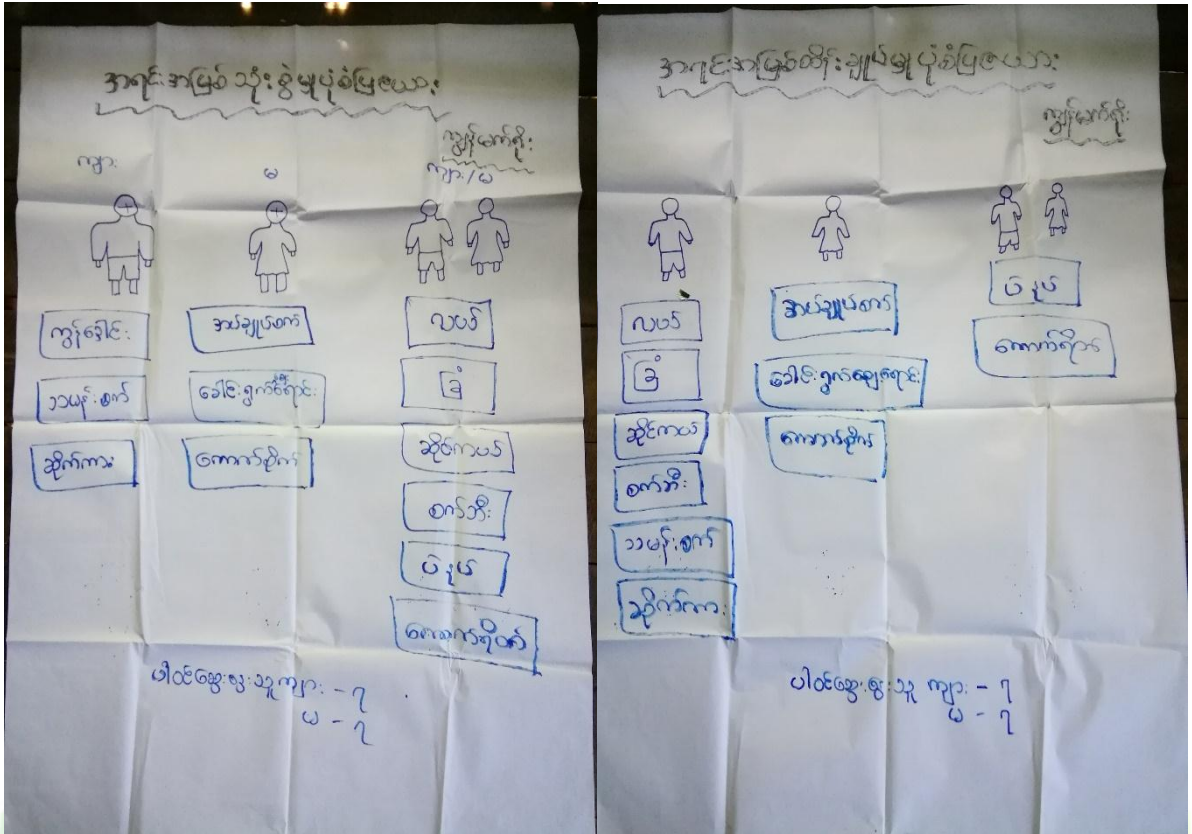 အရင်းအမြစ် သုံးစွဲမှုပုံစံပြဇယား
ကျွန်းမက်ရိုး
ကျား
မ
ကျား/မ
ကွန်ခေါင်း
သမန်းစက်
ဆိုက်ကား
အပ်ချုပ်စက်
ခေါင်းရွက်ဈေးရောင်း
ကောက်စိုက်
လယ်
ခြံ
ဆိုင်ကယ်
စက်ဘီး
ဝဲ နွယ်
ကောက်ရိတ်
ပါဝင်ဆွေးနွေးသူ ကျား - ၇
မ - ၇
အရင်းအမြစ်ထိန်းချုပ်မှုပုံစံပြဇယား
ကျွန်းမက်ရိုး
လယ်
ခြံ
ဆိုင်ကယ်
စက်ဘီး
သမန်းစက်
ဆိုက်ကား
အပ်ချုပ်စက်
ခေါင်းရွက်ဈေးရောင်း
ကောက်စိုက်
ကောက်ရိတ်
ပါဝင်ဆွေးနွေးသူ ကျား - ၇
မ - ၇